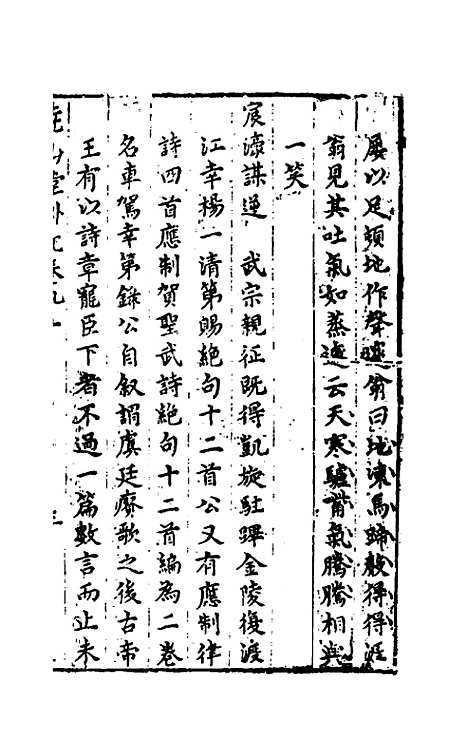 屢以足頓地作聲邃翁曰地凍馬蹄聲得得涯
翁見其吐氣如蒸邃云天寒驢嘴氣騰騰相與
一笑
宸濠謀逆　武宗親征既得凱旋駐蹕金陵復渡
江幸楊一清第賜絕句十二首公又有應制律
詩四首應制賀聖武詩絕句十二首編為二卷
名車駕幸第錄公自叙謂虞廷賡歌之後古帝
王有以詩章寵臣下者不過一篇數言而止未
堯山堂外紀卷九十